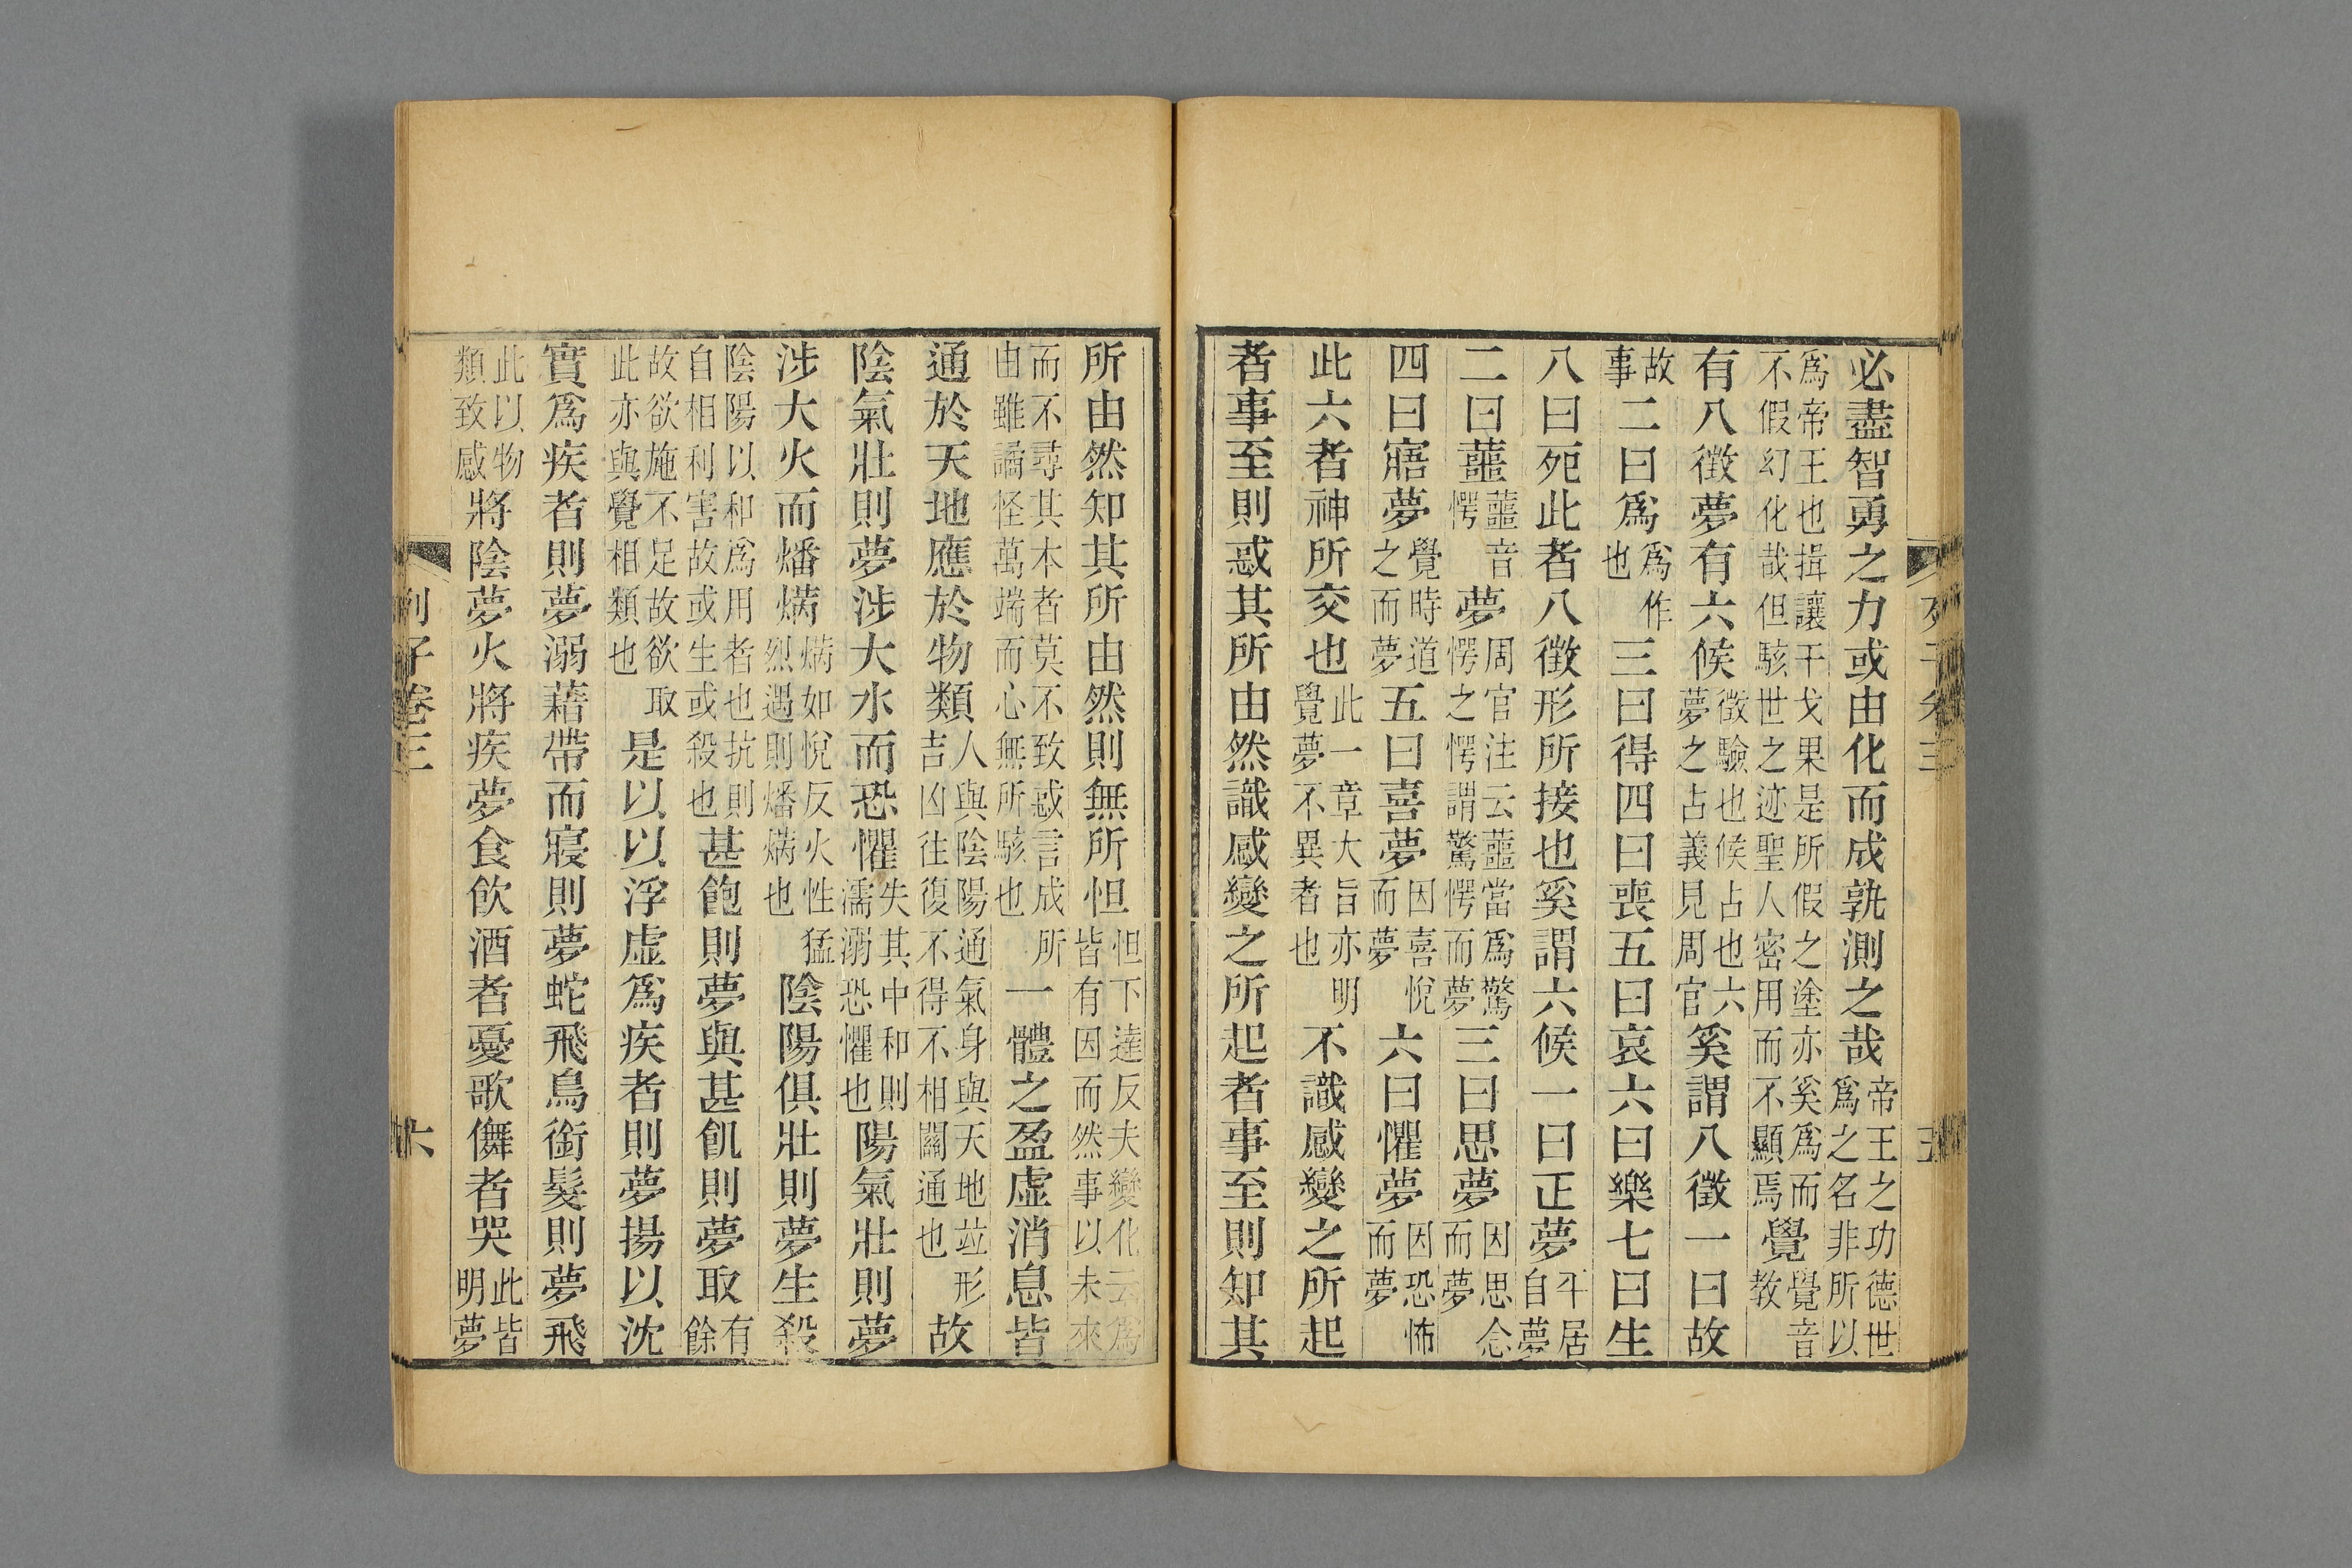 必盡智勇之力或由化而成孰測之哉帝王之功德世爲之名非所以
爲帝王也揖讓干戈果是所假之塗亦奚爲而不假幻化哉但駭世之迹聖人密用而不顯焉覺覺音教
有八徵夢有六候徵驗也候占也六夢之占義見周官奚謂八徵一曰故
故事二曰爲爲作也三曰得四曰喪五曰哀六曰樂七曰生
八曰死此者八徵形所接也奚謂六候一曰正夢平居自夢
二曰蘁蘁音愕夢周官注云蘁當爲驚愕之愕謂驚愕而夢三曰思夢因思念而夢
四曰寤夢覺時道之而夢五曰喜夢因喜悅而夢六曰懼夢因恐怖而夢
此六者神所交也此一章大旨亦明覺夢不異者也不識感變之所起
者事至則惑其所由然識感變之所起者事至則知其
所由然知其所由然則無所怛怛下達反夫變化云爲皆有因而然事以未來
而不尋其本者莫不致惑言成所由雖譎怪萬端而心無所駭也一體之盈虛消息皆
通於天地應於物類人與陰陽通氣身與天地竝形吉凶往復不得不相關通也故
陰氣壯則夢涉大水而恐懼失其中和則濡溺恐懼也陽氣壯則夢
涉大火而燔焫焫如悅反火性猛烈遇則燔焫也陰陽俱壯則夢生殺
陰陽以和爲用者也抗則自相利害故或生或殺也甚飽則夢與甚飢則夢取有餘
故欲施不足故欲取此亦與覺相類也是以以浮虛爲疾者則夢揚以沈
實爲疾者則夢溺藉帶而寢則夢蛇飛鳥銜髮則夢飛
此以物類致感將陰夢火將疾夢食飲酒者憂歌儛者哭此皆明夢
列子卷三
六